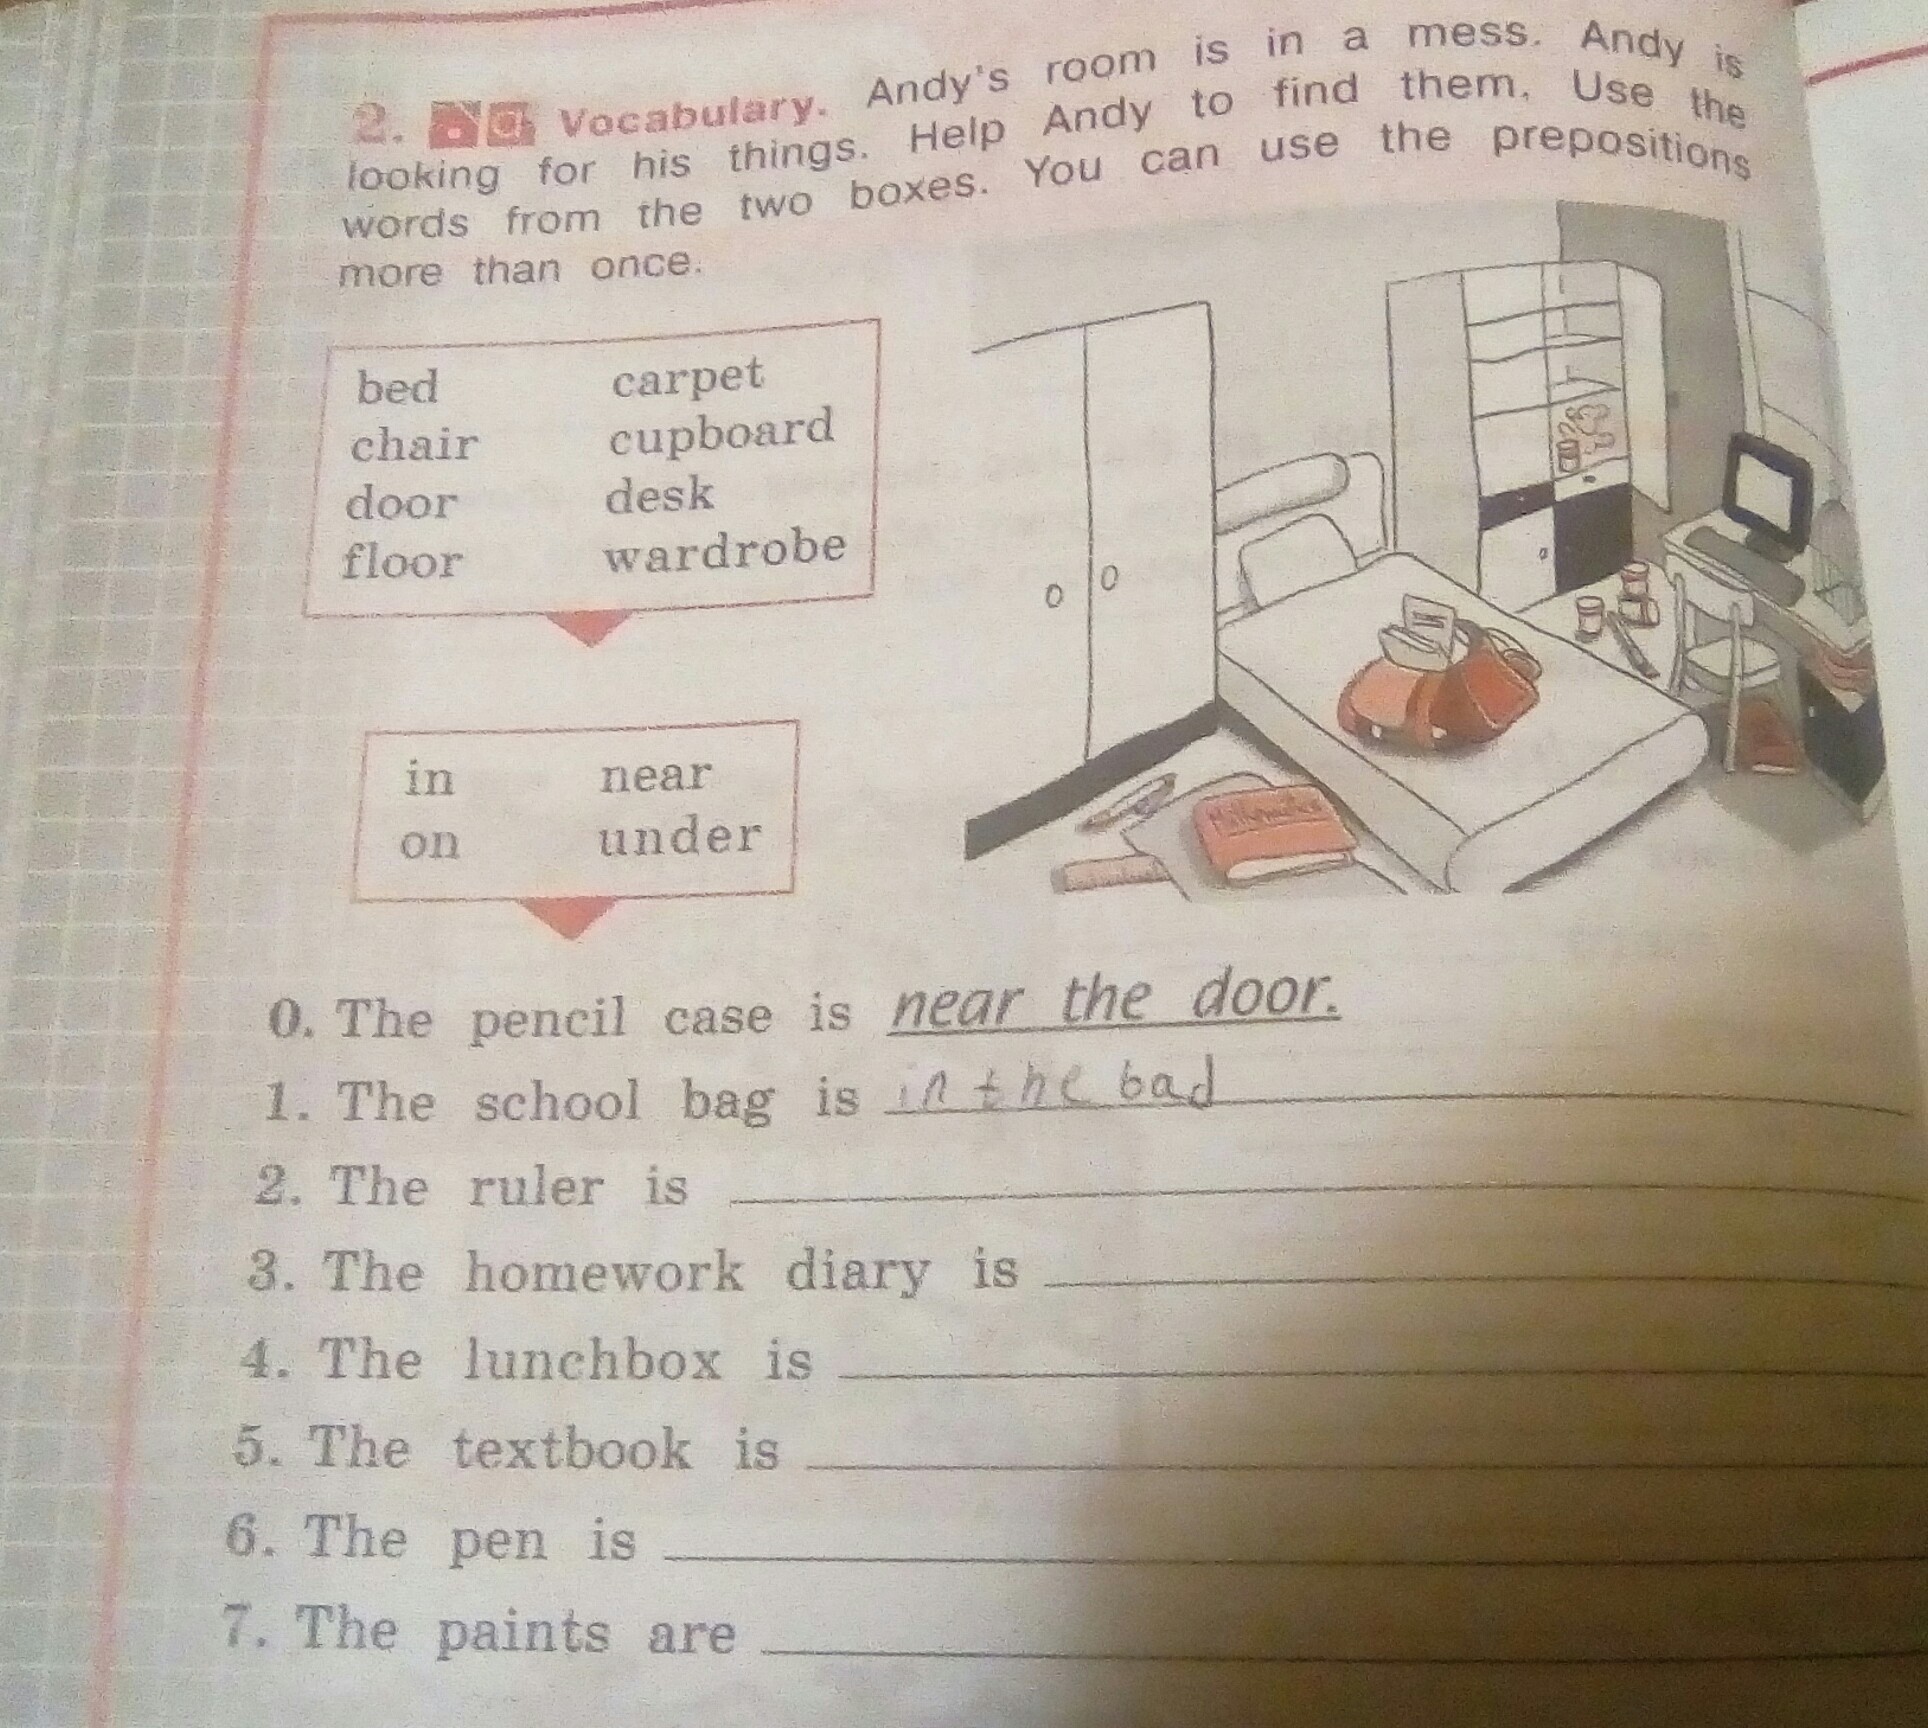 2. Vocabulary. Andy's room is in a mess. Andy is
looking for his things. Help Andy to find them. Use the
words from the two boxes. You can use the prepositions
more than once.
bed carpet
chair cupboard
door desk
floor wardrobe
in near
on under
Mathematics
0. The pencil case is near the door.
1. The school bag is in the bad
2. The ruler is
3. The homework diary is
4. The lunchbox is
5. The textbook is
6. The pen is
7. The paints are